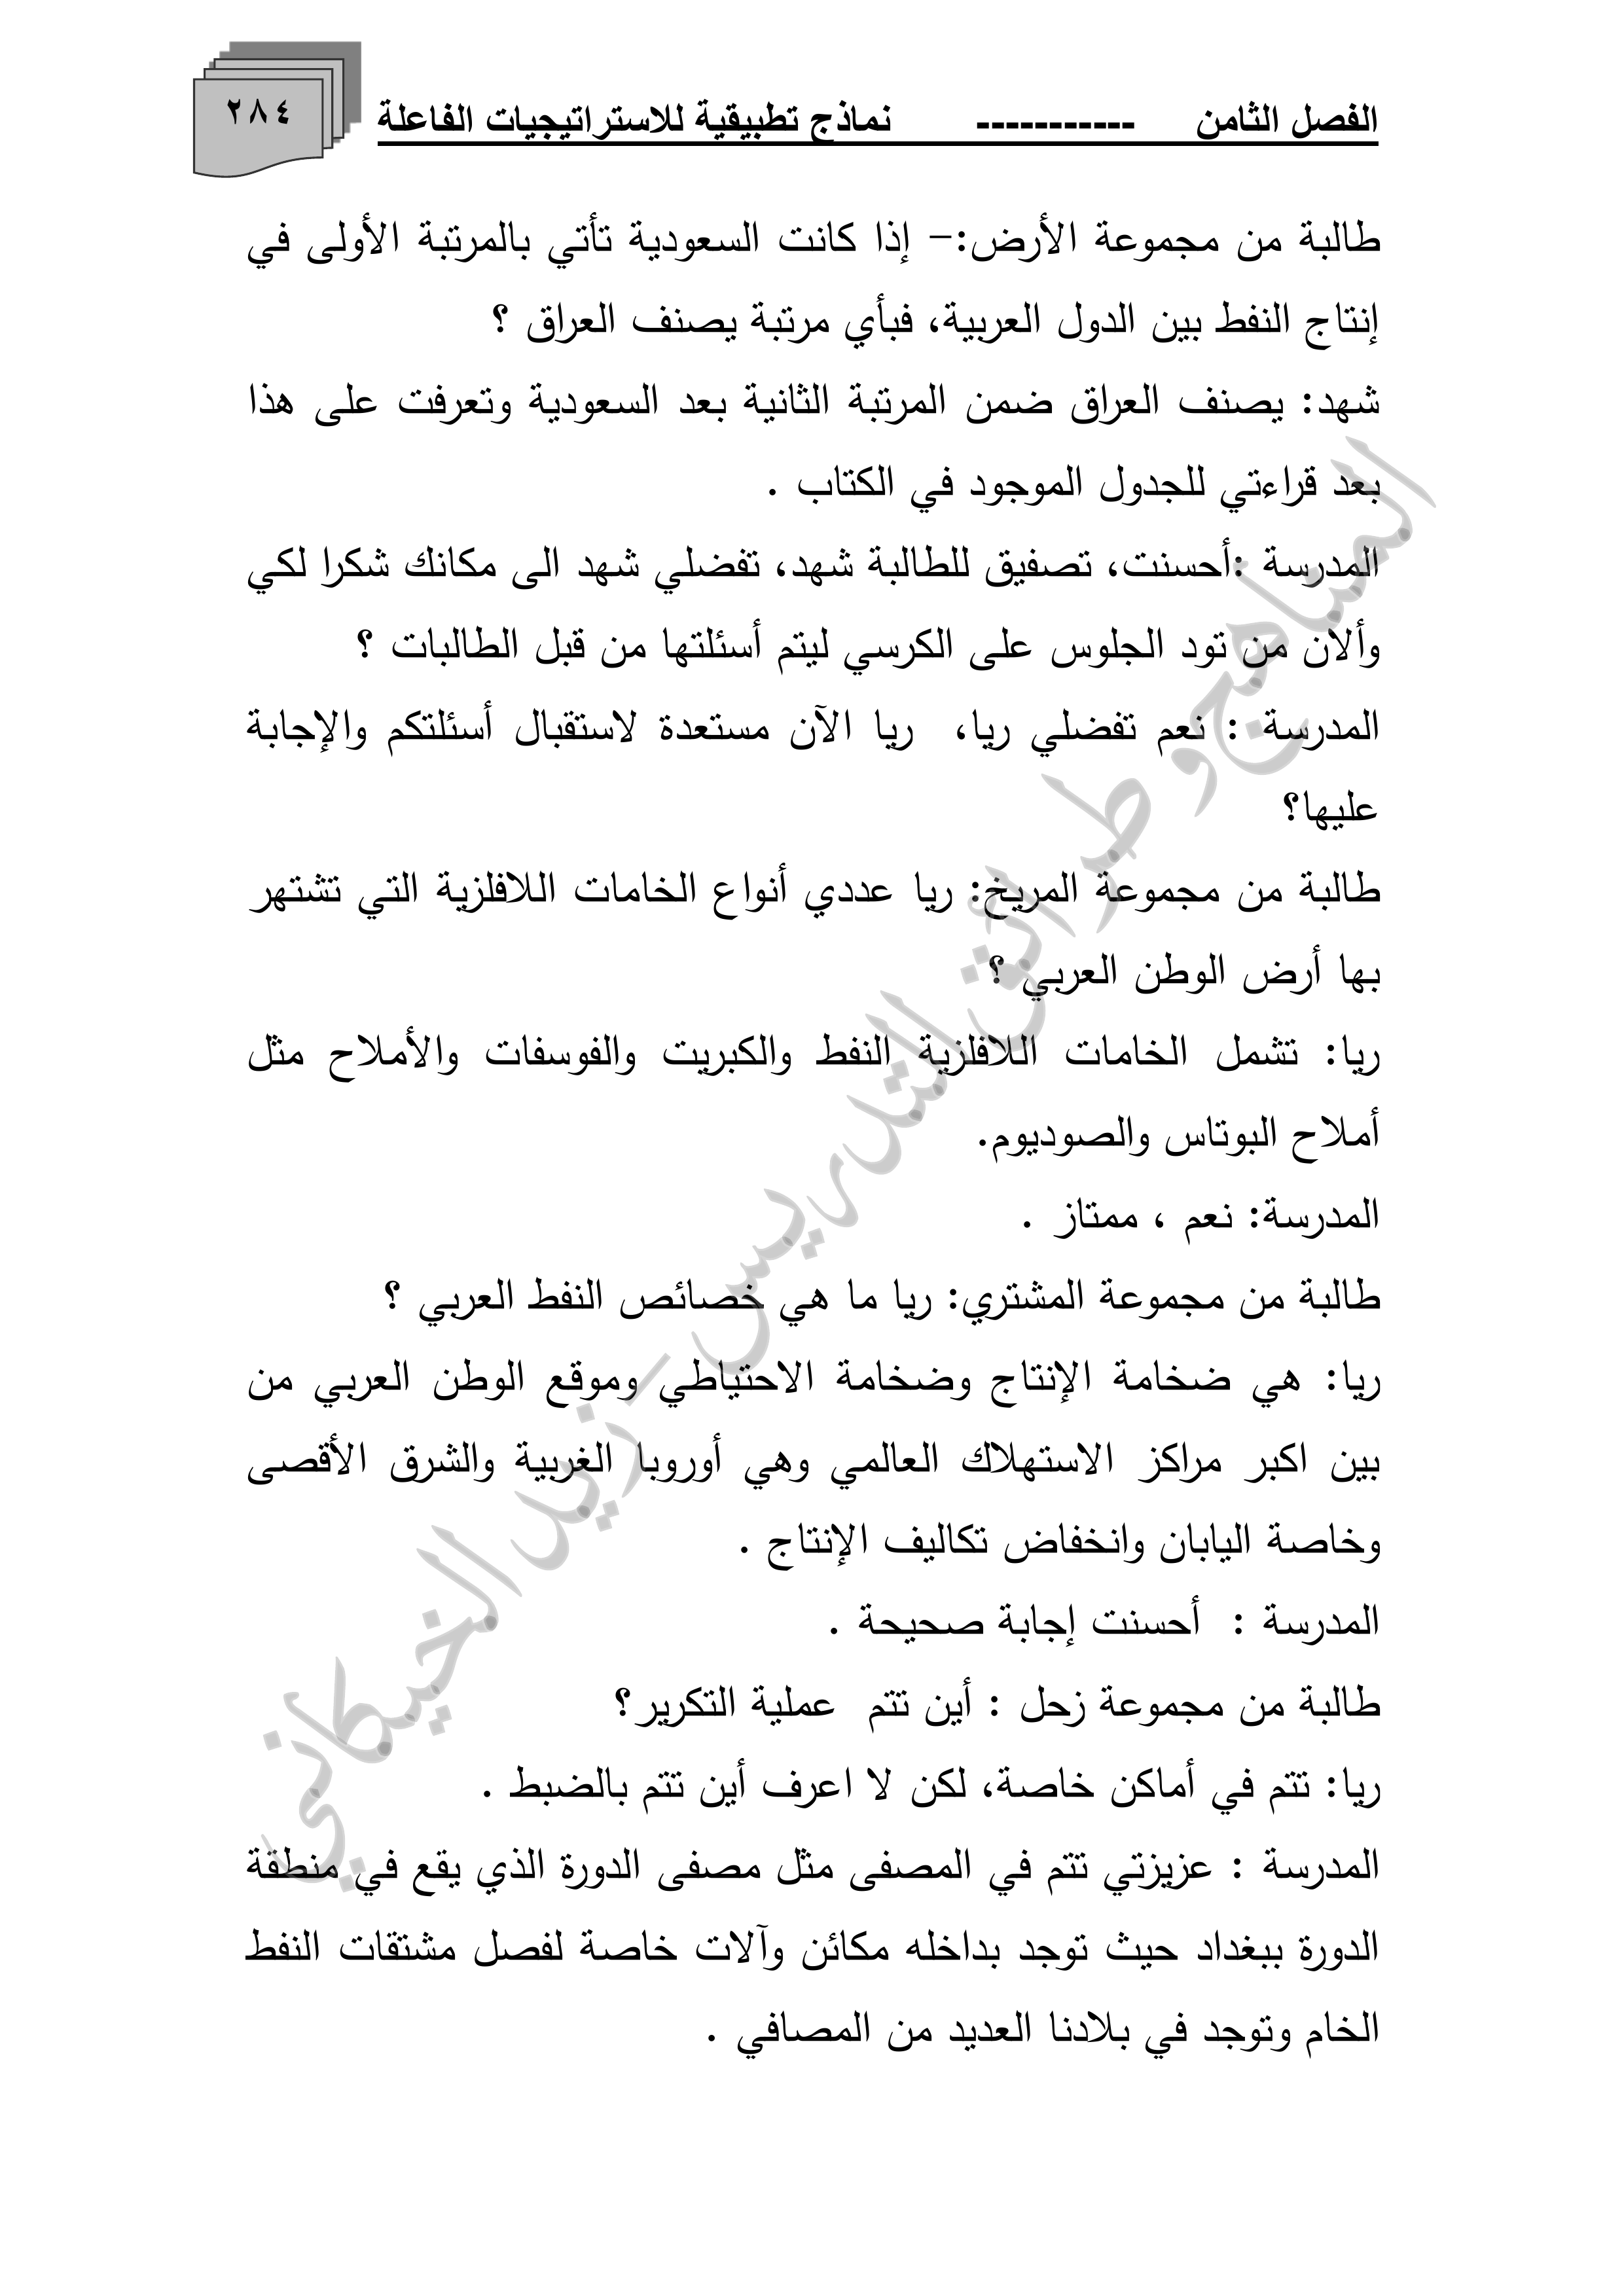 الفصل الثامن ----------- نماذج تطبيقية للاستراتيجيات الفاعلة
٢٨٤
طالبة من مجموعة الأرض:– إذا كانت السعودية تأتي بالمرتبة الأولى في
إنتاج النفط بين الدول العربية، فبأي مرتبة يصنف العراق ؟
شهد: يصنف العراق ضمن المرتبة الثانية بعد السعودية وتعرفت على هذا
بعد قراءتي للجدول الموجود في الكتاب .
المدرسة :أحسنت، تصفيق للطالبة شهد، تفضلي شهد الى مكانك شكرا لكي
وألان من تود الجلوس على الكرسي ليتم أسئلتها من قبل الطالبات ؟
المدرسة : نعم تفضلي ريا، ريا الآن مستعدة لاستقبال أسئلتكم والإجابة
عليها؟
طالبة من مجموعة المريخ: ريا عددي أنواع الخامات اللافلزية التي تشتهر
بها أرض الوطن العربي ؟
ريا: تشمل الخامات اللافلزية النفط والكبريت والفوسفات والأملاح مثل
أملاح البوتاس والصوديوم.
المدرسة: نعم ، ممتاز .
طالبة من مجموعة المشتري: ريا ما هي خصائص النفط العربي ؟
ريا: هي ضخامة الإنتاج وضخامة الاحتياطي وموقع الوطن العربي من
بين اكبر مراكز الاستهلاك العالمي وهي أوروبا الغربية والشرق الأقصى
وخاصة اليابان وانخفاض تكاليف الإنتاج .
المدرسة : أحسنت إجابة صحيحة .
طالبة من مجموعة زحل : أين تتم عملية التكرير؟
ريا: تتم في أماكن خاصة، لكن لا اعرف أين تتم بالضبط .
المدرسة : عزيزتي تتم في المصفى مثل مصفى الدورة الذي يقع في منطقة
الدورة ببغداد حيث توجد بداخله مكائن وآلات خاصة لفصل مشتقات النفط
الخام وتوجد في بلادنا العديد من المصافي .
المناهج وطرائق التدريس - زيد الخيكاني